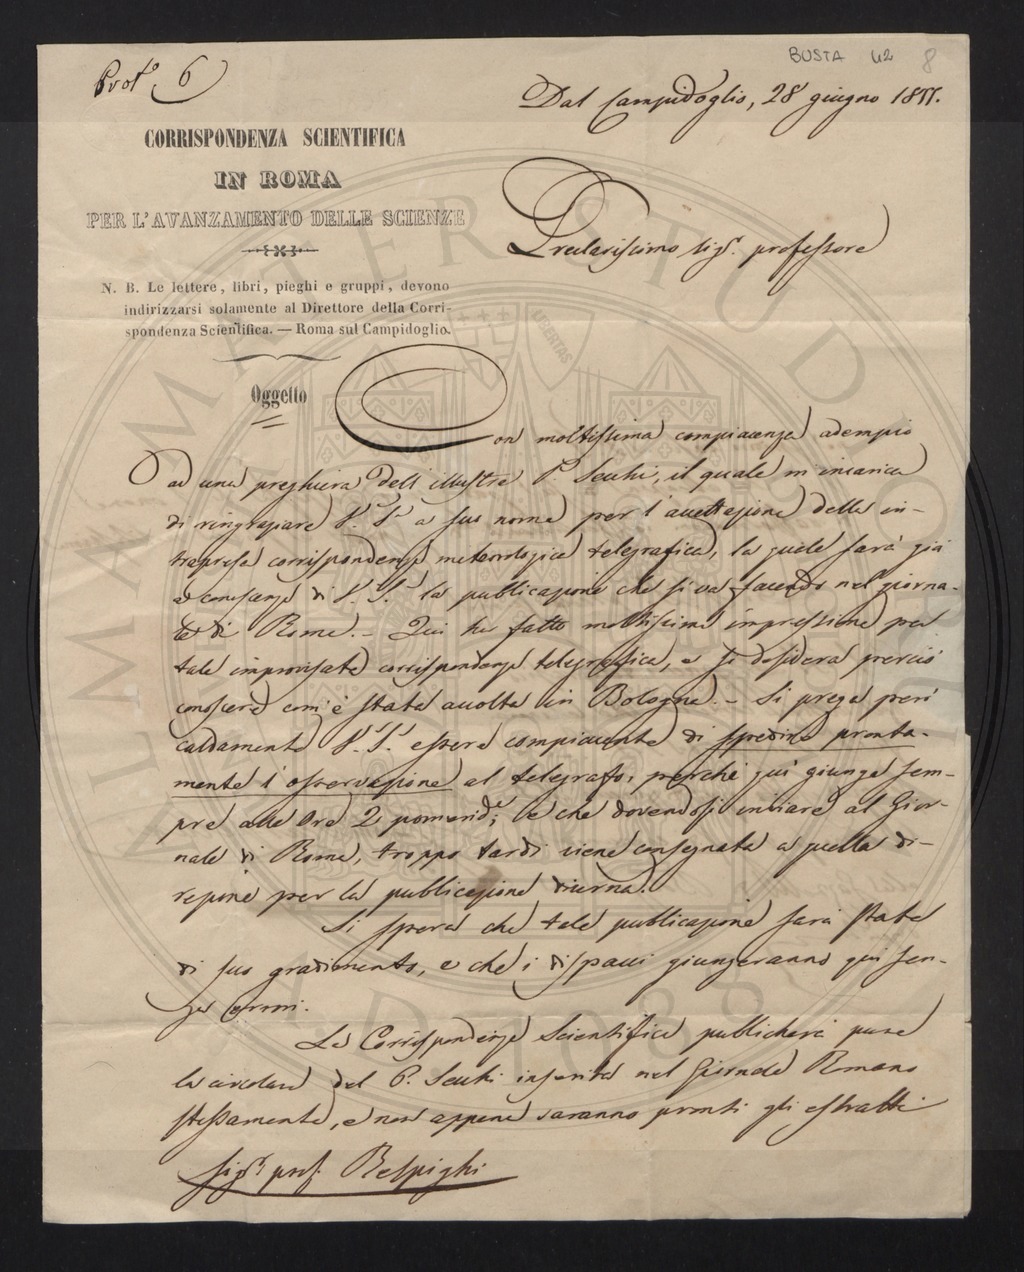 BUSTA 42 8
Prot.º 6
Dal Campidoglio, 28 giugno 1855.
CORRISPONDENZA SCIENTIFICA
IN ROMA
PER L'AVANZAMENTO DELLE SCIENZE
Preclarissimo Sigr. professore
N. B. Le lettere, libri, pieghi e gruppi, devono
indirizzarsi solamente al Direttore della Corri-
spondenza Scientifica. — Roma sul Campidoglio.
Oggetto
Con moltissima compiacenza adempio
ad una preghiera dell'illustre P. Secchi, il quale m'incarica
di ringraziare V. S. a suo nome per l'accettazione della in-
trapresa corrispondenza meteorologica telegrafica, la quale sarà già
a conoscenza di V. S. la publicazione che si va facendo nel giorna-
le di Roma. – Qui ha fatto moltissima impressione per
tale improvisata corrispondenza telegraffica, e si desidera perciò
conoscere com'è stata accolta in Bologna. – Si prega però
caldamente V. S. essere compiacente di spedire pronta-
mente l'osservazione al telegrafo, perché qui giunga sem-
pre alle Ore 2 pomerid.e, e che dovendosi inviare al Gior-
nale di Roma, troppo tardi viene consegnata a quella di-
rezione per la publicazione diurna.
Si spera che tale publicazione sarà stata
di suo gradimento, e che i dispacci giungeranno qui sen-
za errori.
La Corrispondenza Scientifica publicherà pure
la circolare del P. Secchi inserita nel Giornale Romano
stessamente, e non appena saranno pronti gli estratti
Sigr. prof. Respighi
ALMA MATER STUDIORUM
A.D. 1088
LIBERTAS